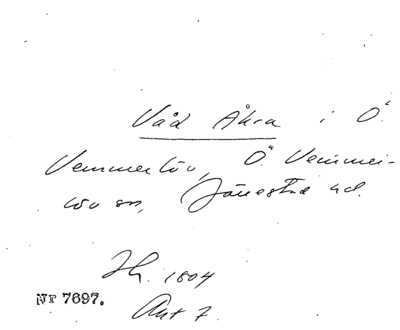 Våd Åkra i Ö.
Vemmerlöv, Ö. Vemmer-
löv sn, Järrestad hd.
Jh. 1804
Akt 7.
Nr 7697.